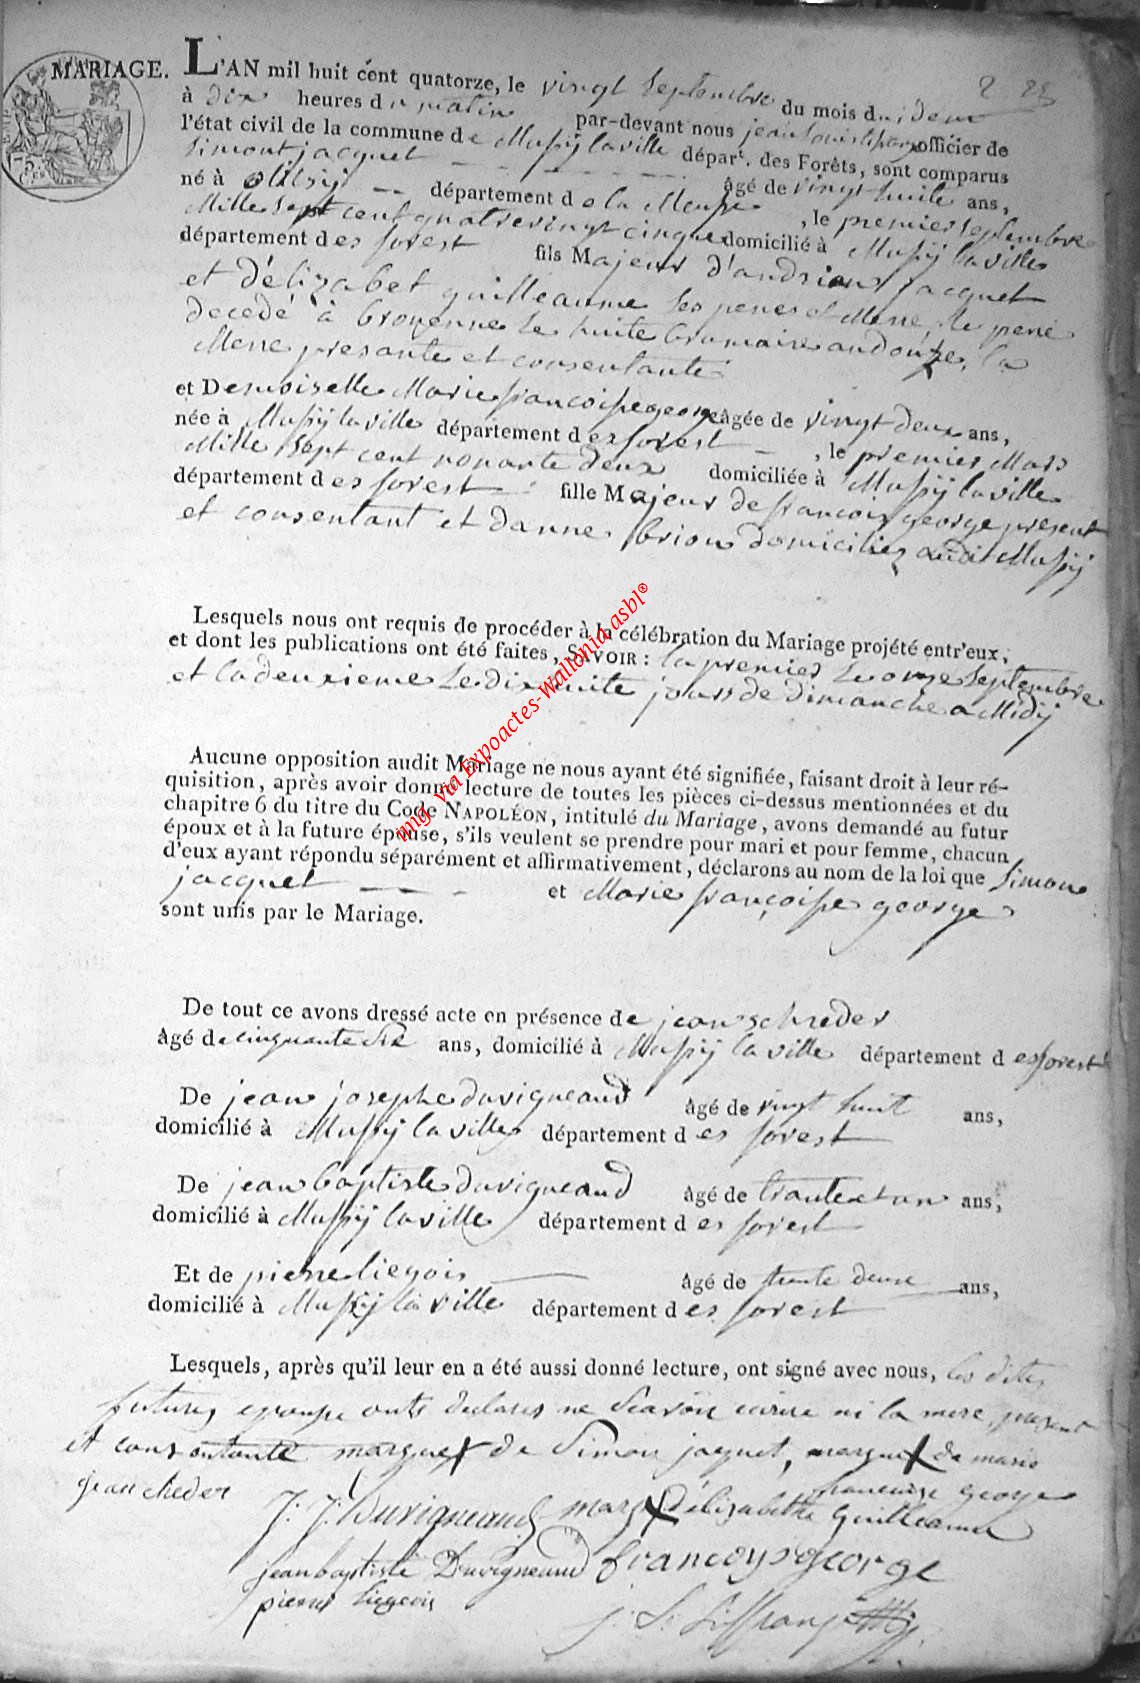 MARIAGE.
L'AN mil huit cent quatorze, le vingt Septembre du mois d
à dix heures du matin par-devant nous jean louis officier de
l'état civil de la commune de Mussÿ laville départ. des Forêts, sont comparus
Simont jacquet âgé de vingt huite ans,
né à département de la Meuse, le premier septembre
Mille sept cent quatre vingt cinque domicilié à Mussÿ laville
département des forest fils Majeur d'andrien jacquet
et d'élizabet guilleaume ses peres et Mere, le pere
decedé à le huite brumaire an douze, la
Mere presante et consentante
et Demoiselle Marie françoise george âgée de vingt deux ans,
née à Mussÿ laville département des forest, le premier Mars
Mille sept cent nonante deux domiciliée à Mussÿ laville
département des forest fille Majeur de francois george present
et consentant et danne brion domiciliez audit Mussÿ
Lesquels nous ont requis de procéder à la célébration du Mariage projété entr'eux,
et dont les publications ont été faites, SAVOIR : la premier Le onze Septembre
et la deuxieme Le dix huite jours de dimanche a Midÿ
Aucune opposition audit Mariage ne nous ayant été signifiée, faisant droit à leur ré-
quisition, après avoir donné lecture de toutes les pièces ci-dessus mentionnées et du
chapitre 6 du titre du Code NAPOLÉON, intitulé du Mariage, avons demandé au futur
époux et à la future épouse, s'ils veulent se prendre pour mari et pour femme, chacun
d'eux ayant répondu séparément et affirmativement, déclarons au nom de la loi que Simon
jacquet et Marie françoise george
sont unis par le Mariage.
De tout ce avons dressé acte en présence de jean schreder
âgé de cinquante six ans, domicilié à Mussÿ la ville département des forest
De jean josephe duvigneaud âgé de vingt huit ans,
domicilié à Mussÿ la ville département des forest
De jean baptiste duvigneaud âgé de trante et un ans,
domicilié à Mussÿ la ville département des forest
Et de pierre liegois âgé de trente deux ans,
domicilié à Mussÿ la ville département des forest
Lesquels, après qu'il leur en a été aussi donné lecture, ont signé avec nous, les dites
futures epouse onts declares ne scavoir écrire ni la mere present
et consentante marque X de Simon jacquet, marque X de marie
francoise george
jean cheder J. J. Duvigneaud marq X d'élizabethe guilleaume
jean baptiste Duvigneaud francoys george
pierre liegeois
img. via Expoactes-Wallonia asbl®